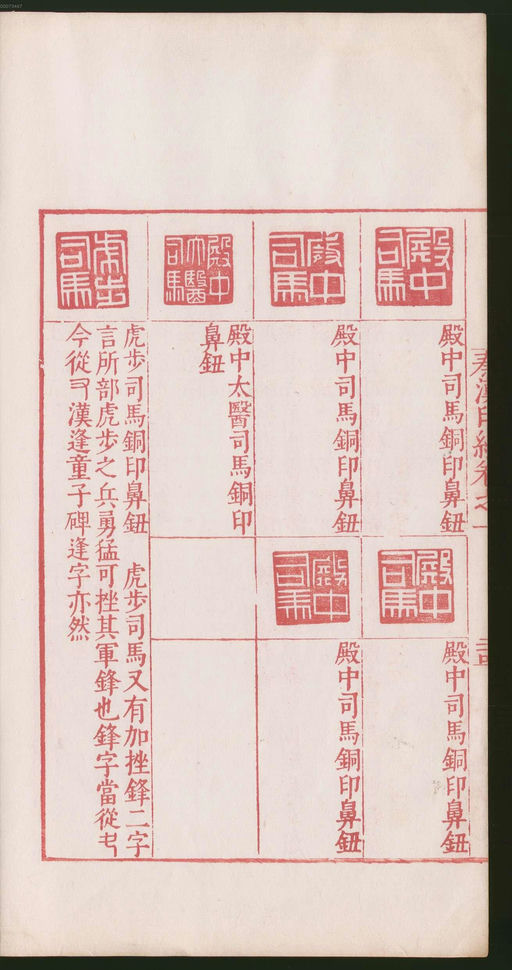 00073447
殿中
司馬
殿中司馬銅印鼻鈕
殿中
司馬
殿中司馬銅印鼻鈕
殿中
司馬
殿中司馬銅印鼻鈕
殿中
司馬
殿中司馬銅印鼻鈕
殿中
太醫
司馬
殿中太醫司馬銅印
鼻鈕
虎步
司馬
虎步司馬銅印鼻鈕　虎步司馬又有加挫鋒二字
言所部虎步之兵勇猛可挫其軍鋒也鋒字當從
今從漢逢童子碑逢字亦然